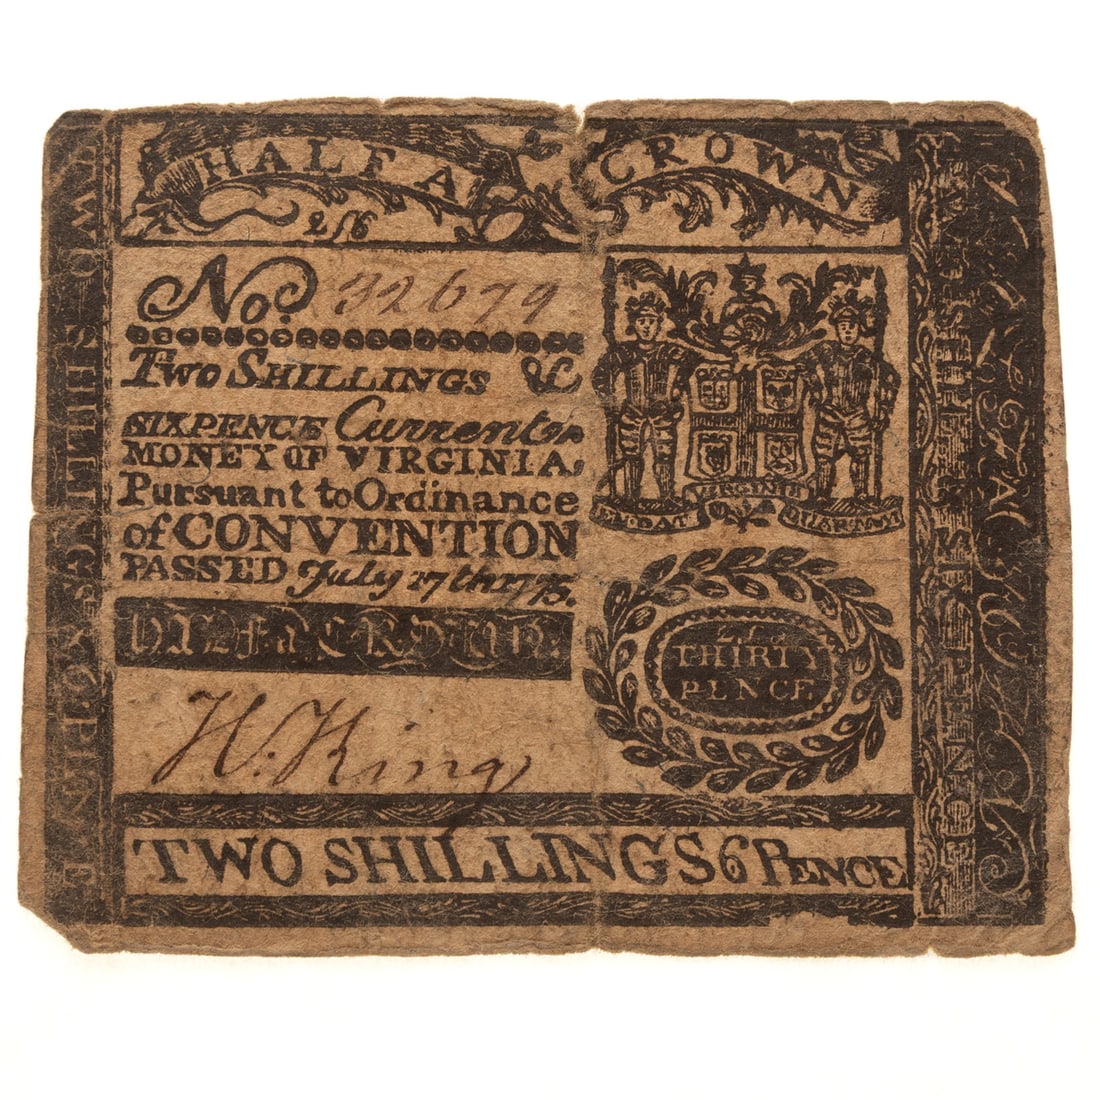 HALF A CROWN
2/6
No. 32679
TWO SHILLINGS &
SIXPENCE Current
MONEY OF VIRGINIA,
Pursuant to Ordinance
of CONVENTION
PASSED July 17th 1775.
HALF a CROWN.
H: King
VIRGINIA
EN DAT
QUARTAM
THIRTY
PENCE.
TWO SHILLINGS 6 PENCE
TWO SHILLINGS